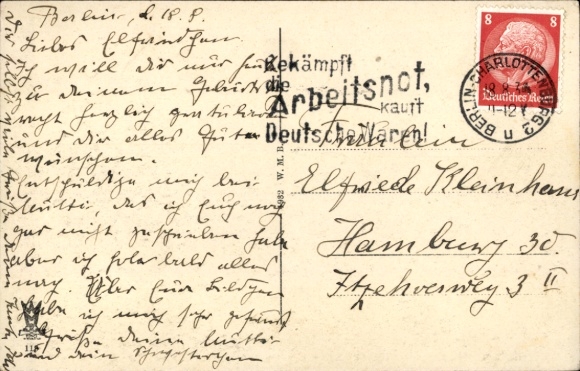 Berlin, d. 18. 8.
Liebes Elfriedchen.
Ich will dir nur
zu deinem
recht herzlich gratulieren
und dir alles Gute
wünschen.
Entschuldige mich bei
Mutti, das ich Euch noch
gar nicht geschrieben habe
aber ich hole bald alles
nach. Über Eure Bildchen
habe ich mich sehr gefreut
Grüße deine Mutti
und dein Schwesterchen
Bekämpft
die
Arbeitsnot,
kauft
Deutsche Waren!
8 8
Deutsches Reich
BERLIN-CHARLOTTENBURG 2
Fräulein
Elfriede Kleinhans
Hamburg 30.
Itzehoerweg 3 II
W. M. B.